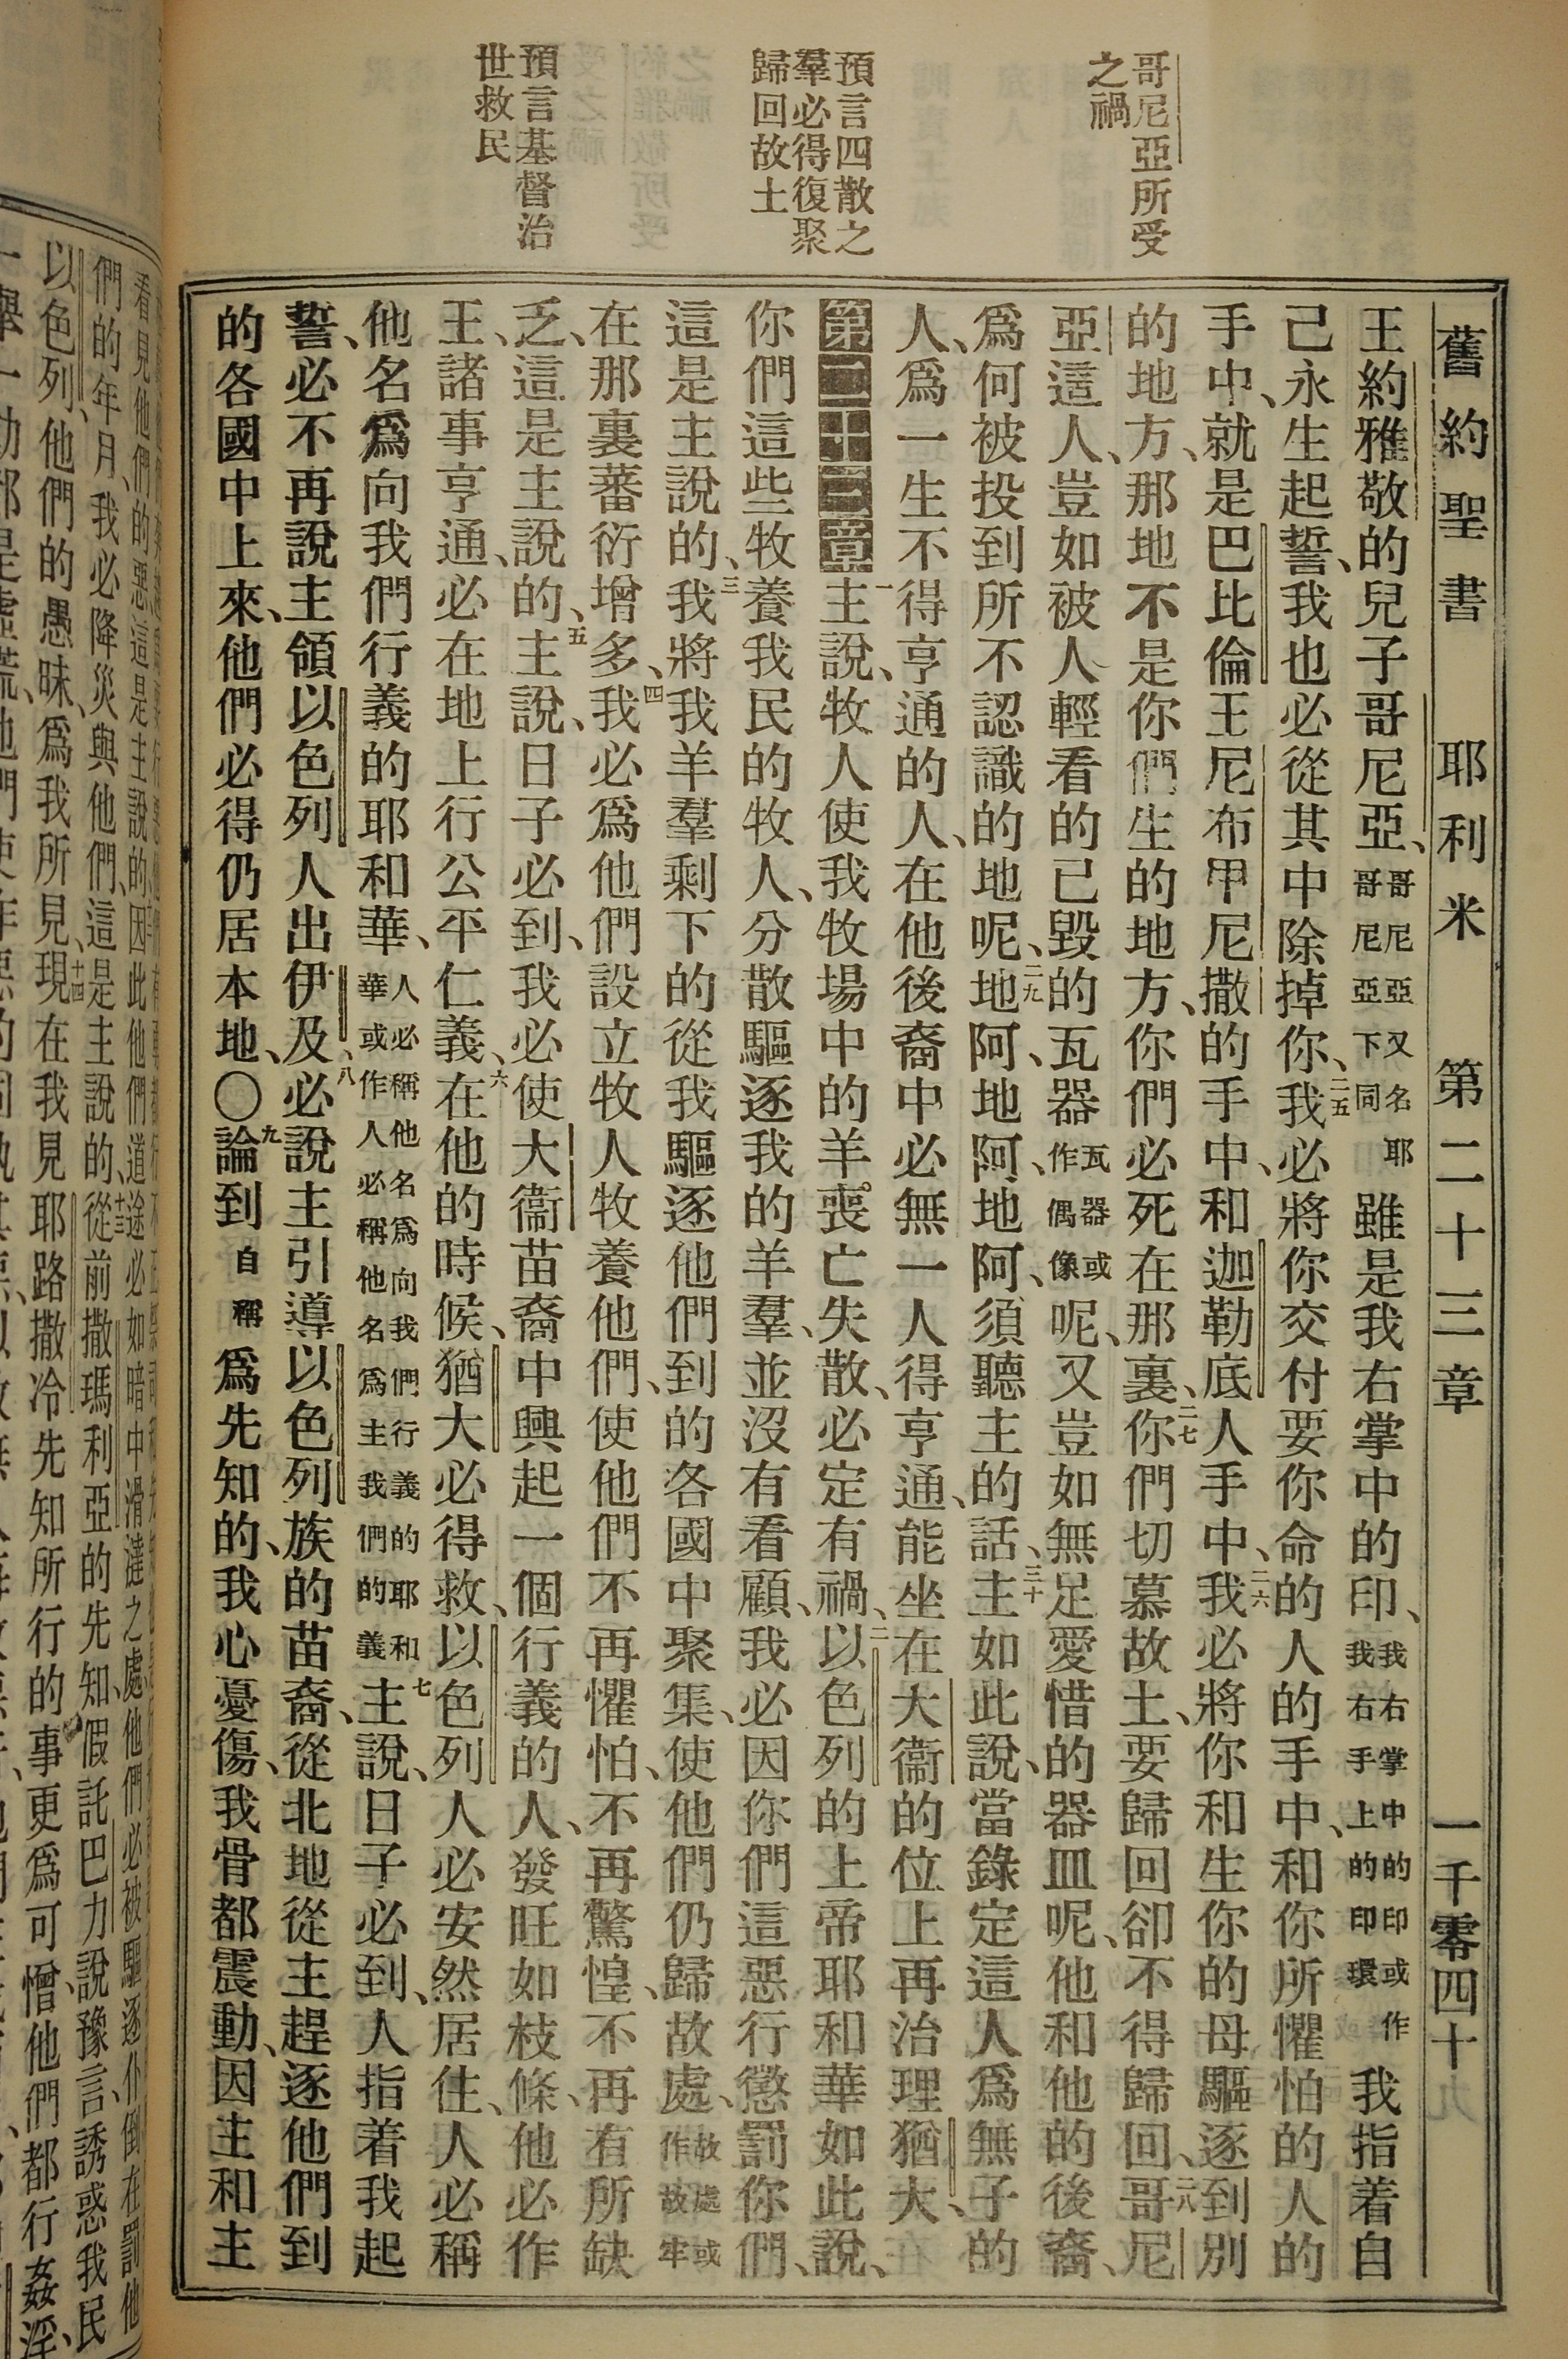 哥尼亞所受
之禍
預言四散之
羣必得復聚
歸回故土
預言基督治
世救民
舊約聖書 耶利米 第二十三章 一千零四十九
王約雅敬的兒子哥尼亞、哥尼亞又名耶哥尼亞下同雖是我右掌中的印、我右掌中的印或作我右手上的印環我指着自
己永生起誓、我也必從其中除掉你、二五我必將你交付要你命的人的手中、和你所懼怕的人的
手中、就是巴比倫王尼布甲尼撒的手中、和迦勒底人手中、二六我必將你和生你的母驅逐到別
的地方、那地不是你們生的地方、你們必死在那裏、二七你們切慕故土、要歸回卻不得歸回、二八哥尼
亞這人、豈如被人輕看的已毀的瓦器瓦器或作偶像呢、又豈如無足愛惜的器皿呢、他和他的後裔、
爲何被投到所不認識的地呢、二九地阿、地阿、地阿、須聽主的話、三十主如此說、當錄定這人爲無子的
人、爲一生不得亨通的人、在他後裔中必無一人得亨通、能坐在大衞的位上再治理猶大、
第二十三章 一主說、牧人使我牧場中的羊喪亡失散、必定有禍、二以色列的上帝耶和華如此說、
你們這些牧養我民的牧人、分散驅逐我的羊羣、並沒有看顧、我必因你們這惡行懲罰你們、
這是主說的、三我將我羊羣剩下的從我驅逐他們到的各國中聚集、使他們仍歸故處、故處或作故牢
在那裏蕃衍增多、四我必爲他們設立牧人牧養他們、使他們不再懼怕、不再驚惶、不再有所缺
乏、這是主說的、五主說、日子必到、我必使大衞苗裔中興起一個行義的人、發旺如枝條、他必作
王、諸事亨通、必在地上行公平仁義、六在他的時候、猶大必得救、以色列人必安然居住、人必稱
他名爲向我們行義的耶和華、人必稱他名爲向我們行義的耶和華或作人必稱他名爲主我們的義七主說、日子必到、人指着我起
誓、必不再說主領以色列人出伊及、八必說主引導以色列族的苗裔、從北地從主趕逐他們到
的各國中上來、他們必得仍居本地、〇九論到自稱爲先知的、我心憂傷、我骨都震動、因主和主
看見他們的惡、這是主說的、因此他們道途必如暗中滑澾之處、他們必被驅逐仆倒在罰他
們的年月、我必降災與他們、這是主說的、十三從前撒瑪利亞的先知、假託巴力說豫言、誘惑我民
以色列、他們的愚昧、爲我所見、十四現在我見耶路撒冷先知所行的事更爲可憎、他們都行姦淫、